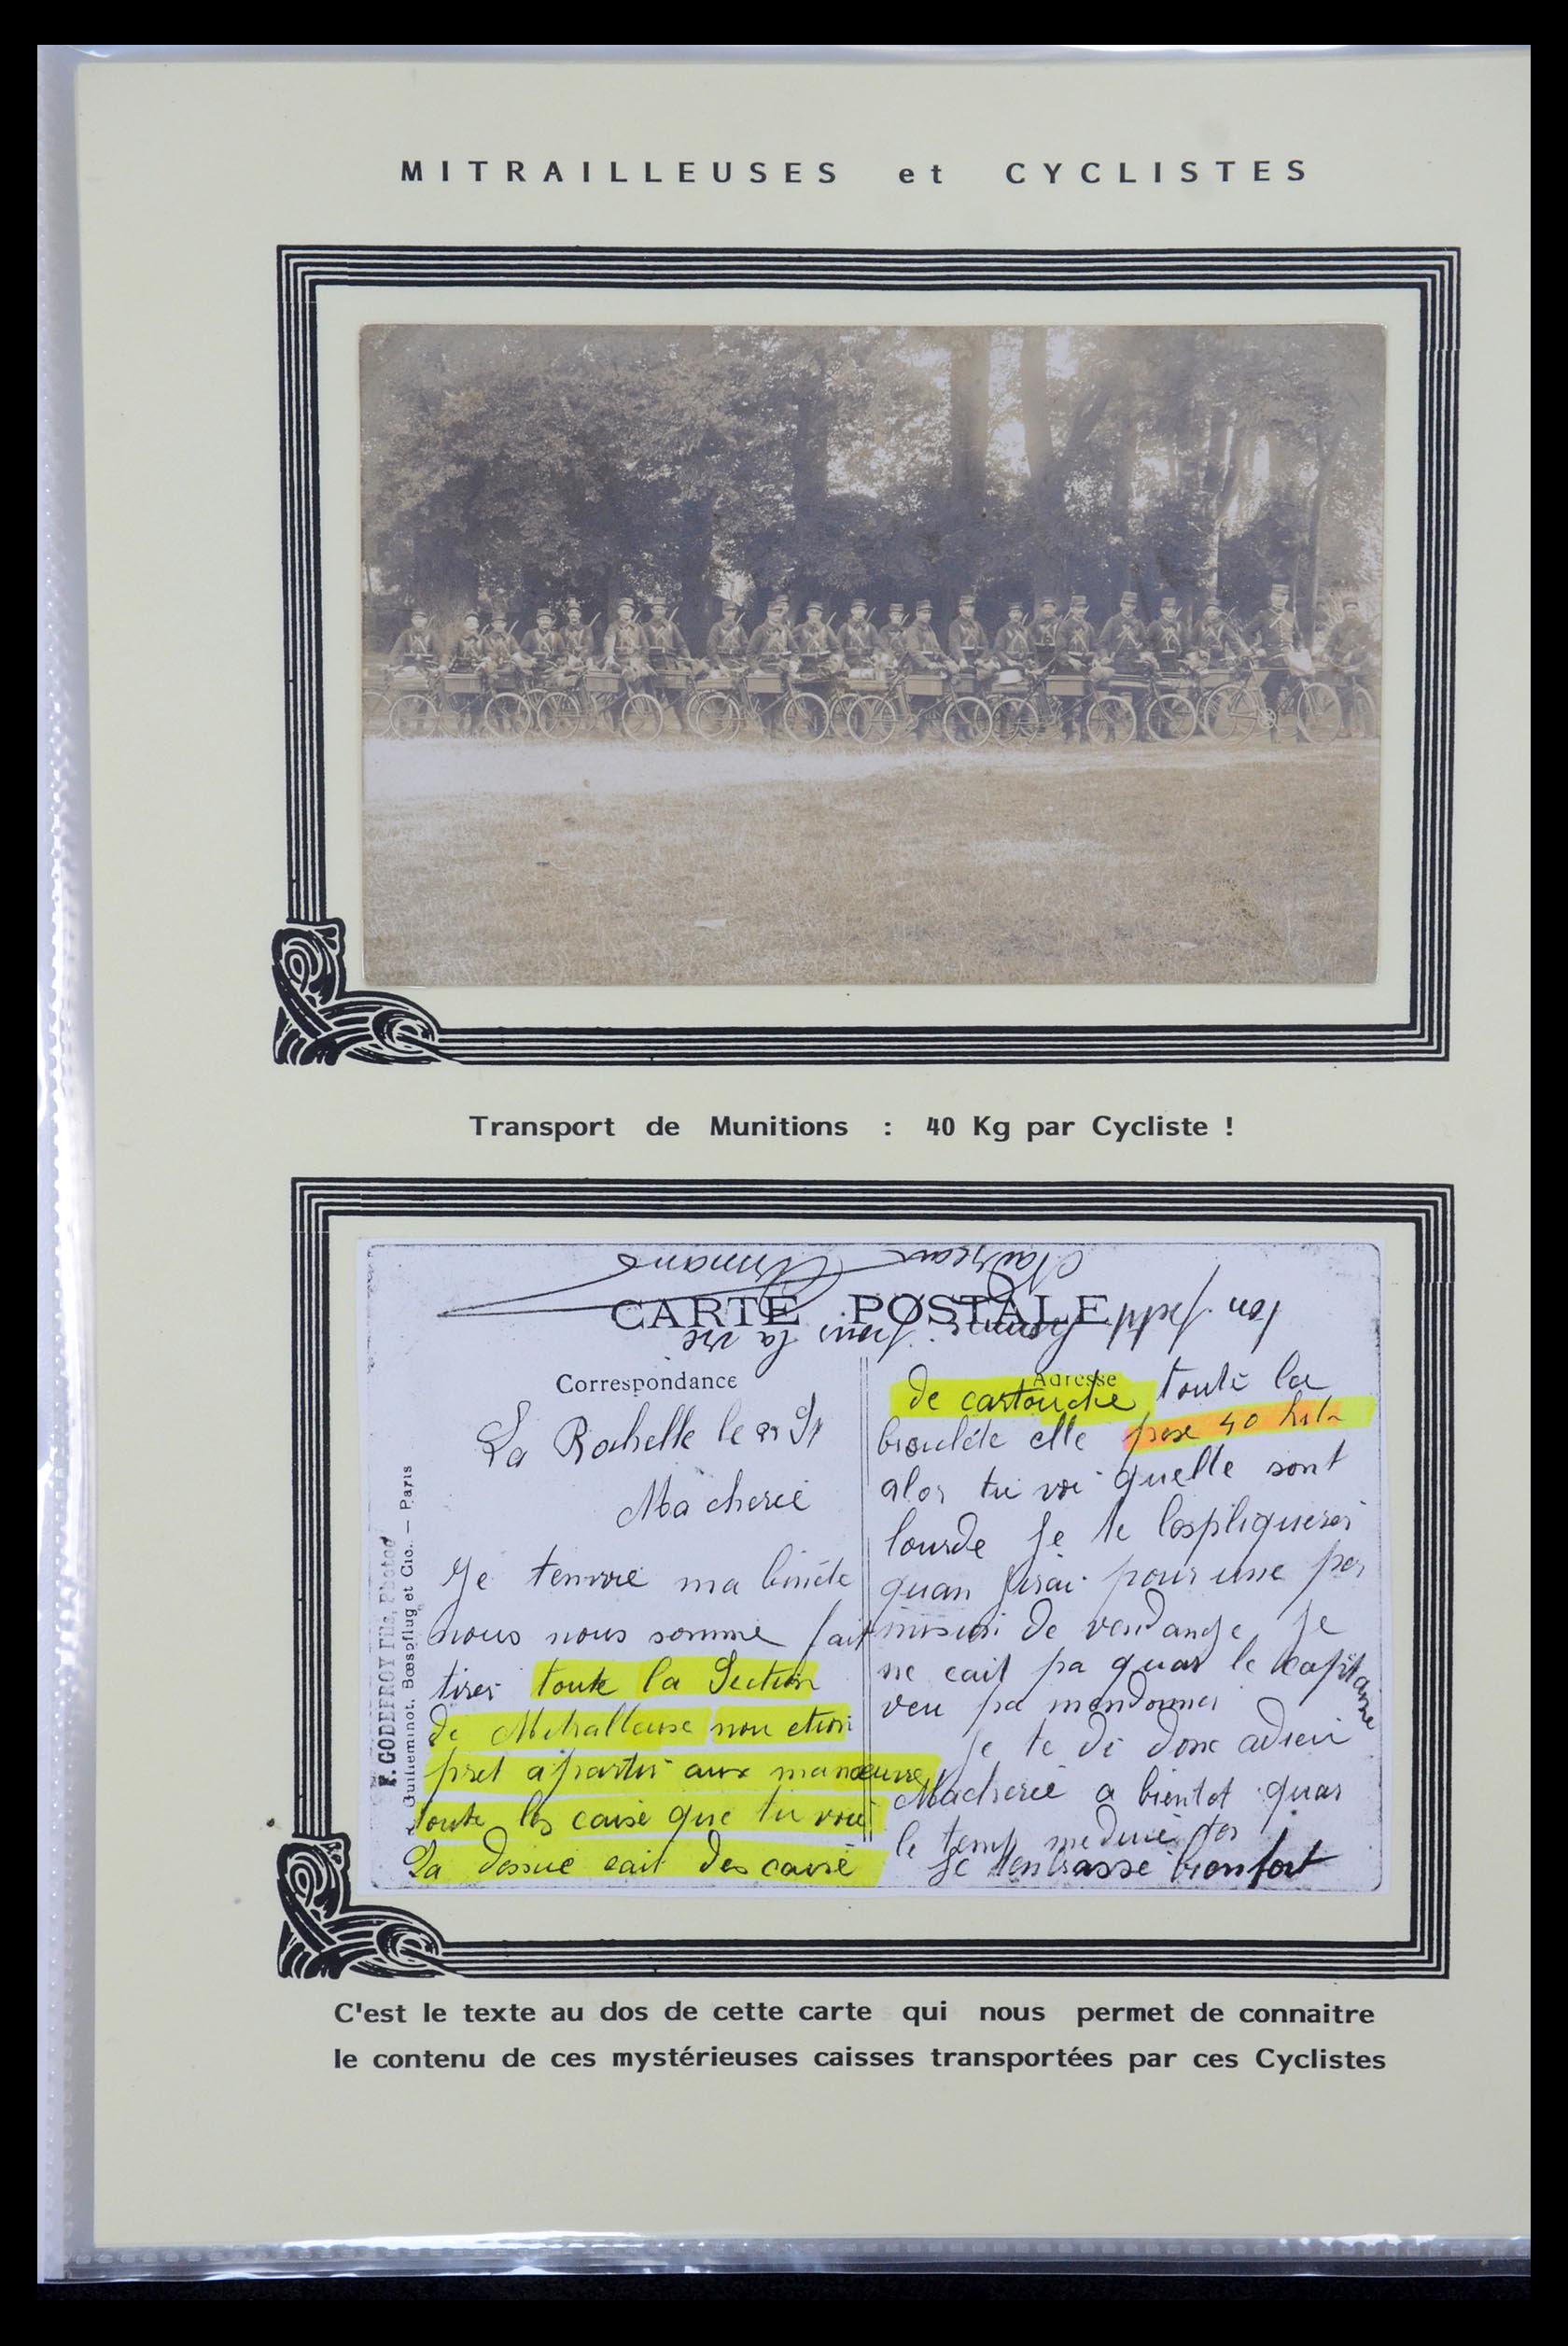 MITRAILLEUSES et CYCLISTES
Transport de Munitions : 40 Kg par Cycliste !
CARTE POSTALE
Ton petit homme pour la vie
Armand
Correspondance
Adresse
La Rochelle le
Ma cherie
Je tenvoie ma binéte
nous nous somme fait
tirer toute la Section
de Mitralleuse nou etion
pret a partir aux manœuvre
toute les caise que tu voie
La dessue cait des caisse
de cartouche toute la
brouléte elle pese 40 kil
alor tu voi quelle sont
lourde Je te lespliquerai
quan Jirai pour une per
mision de vendange Je
ne cait pa quar le capitaine
veu pa mendonner
Je te di donc adieu
Macherie a bientot quar
le temp me dure
Je tembrasse bien fort
F. GODEFROY Fils, Photog
Guilleminot, Bœspflug et Cie. — Paris
C'est le texte au dos de cette carte qui nous permet de connaitre
le contenu de ces mystérieuses caisses transportées par ces Cyclistes